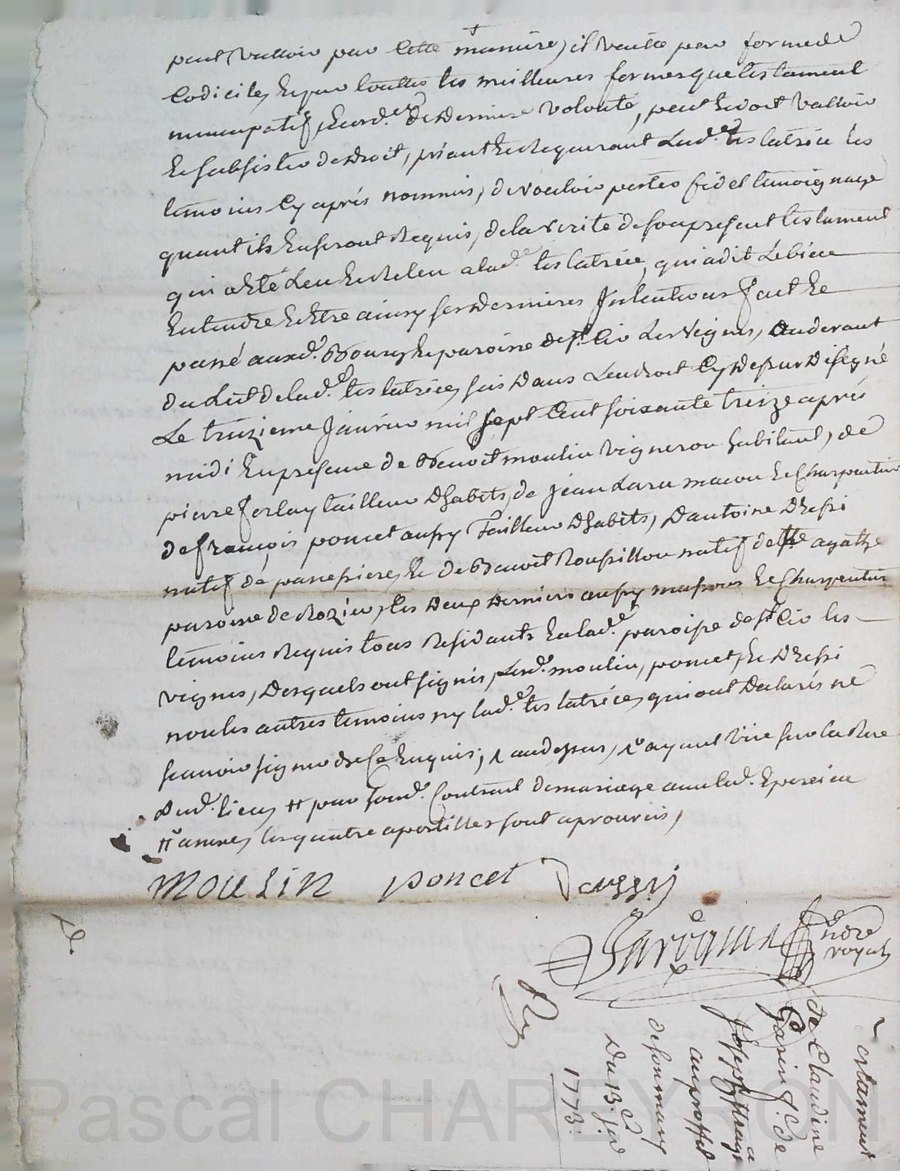 peut valloir par cette maniere, il veuille par forme de
Codicile, et par touttes les meilleures formes que testament
nuncupatif et ord.re de derniere volonté, peut et doit valloir
et subsister de droit, priant et requerant lad.e testatrice les
temoins cy après nommés, de vouloir porter fidel temoignage
quant ils en seront requis, de la verité de son present testament
qui a eté leu et releu a lad.e testatrice, qui a dit le bien
entendre et etre ainsy ses dernieres intentions fait et
passé aux d. Bourg et paroisse de St. Cir les vignes, au devant
du lit de lad.e testatrice, sis dans l'endroit cy dessus designé
Le treizieme janvier mil sept cent soixante treize après
midi en presence de Benoit moulin vigneron habitant, de
pierre ferlay tailleur d'habits, de Jean Lara macon et charpentier
de françois poncet aussy tailleur d'habits, d'antoine
natif de panessiere, et de Benoit Roussillon natif de Ste agathe
paroisse de Rozier, les deux derniers aussy massons et charpentiers
temoins requis tous residants en lad.e paroisse de St. Cir les
vignes, desquels ont signés, led. moulin, poncet, et
non les autres temoins ny lad.e testatrice, qui ont declarés ne
scavoir signer de ce enquis; au dessus, ayant vüe sur la Rue
dud. lieu, # pour sond. Contrat de mariage avec lad.
# années, les quatre apostilles sont aprouvés,
MOULIN poncet
ndre
royal
Testament
de Claudine
de
a
de son mary
Du 13 jer
1773.
Pascal CHAREYRON